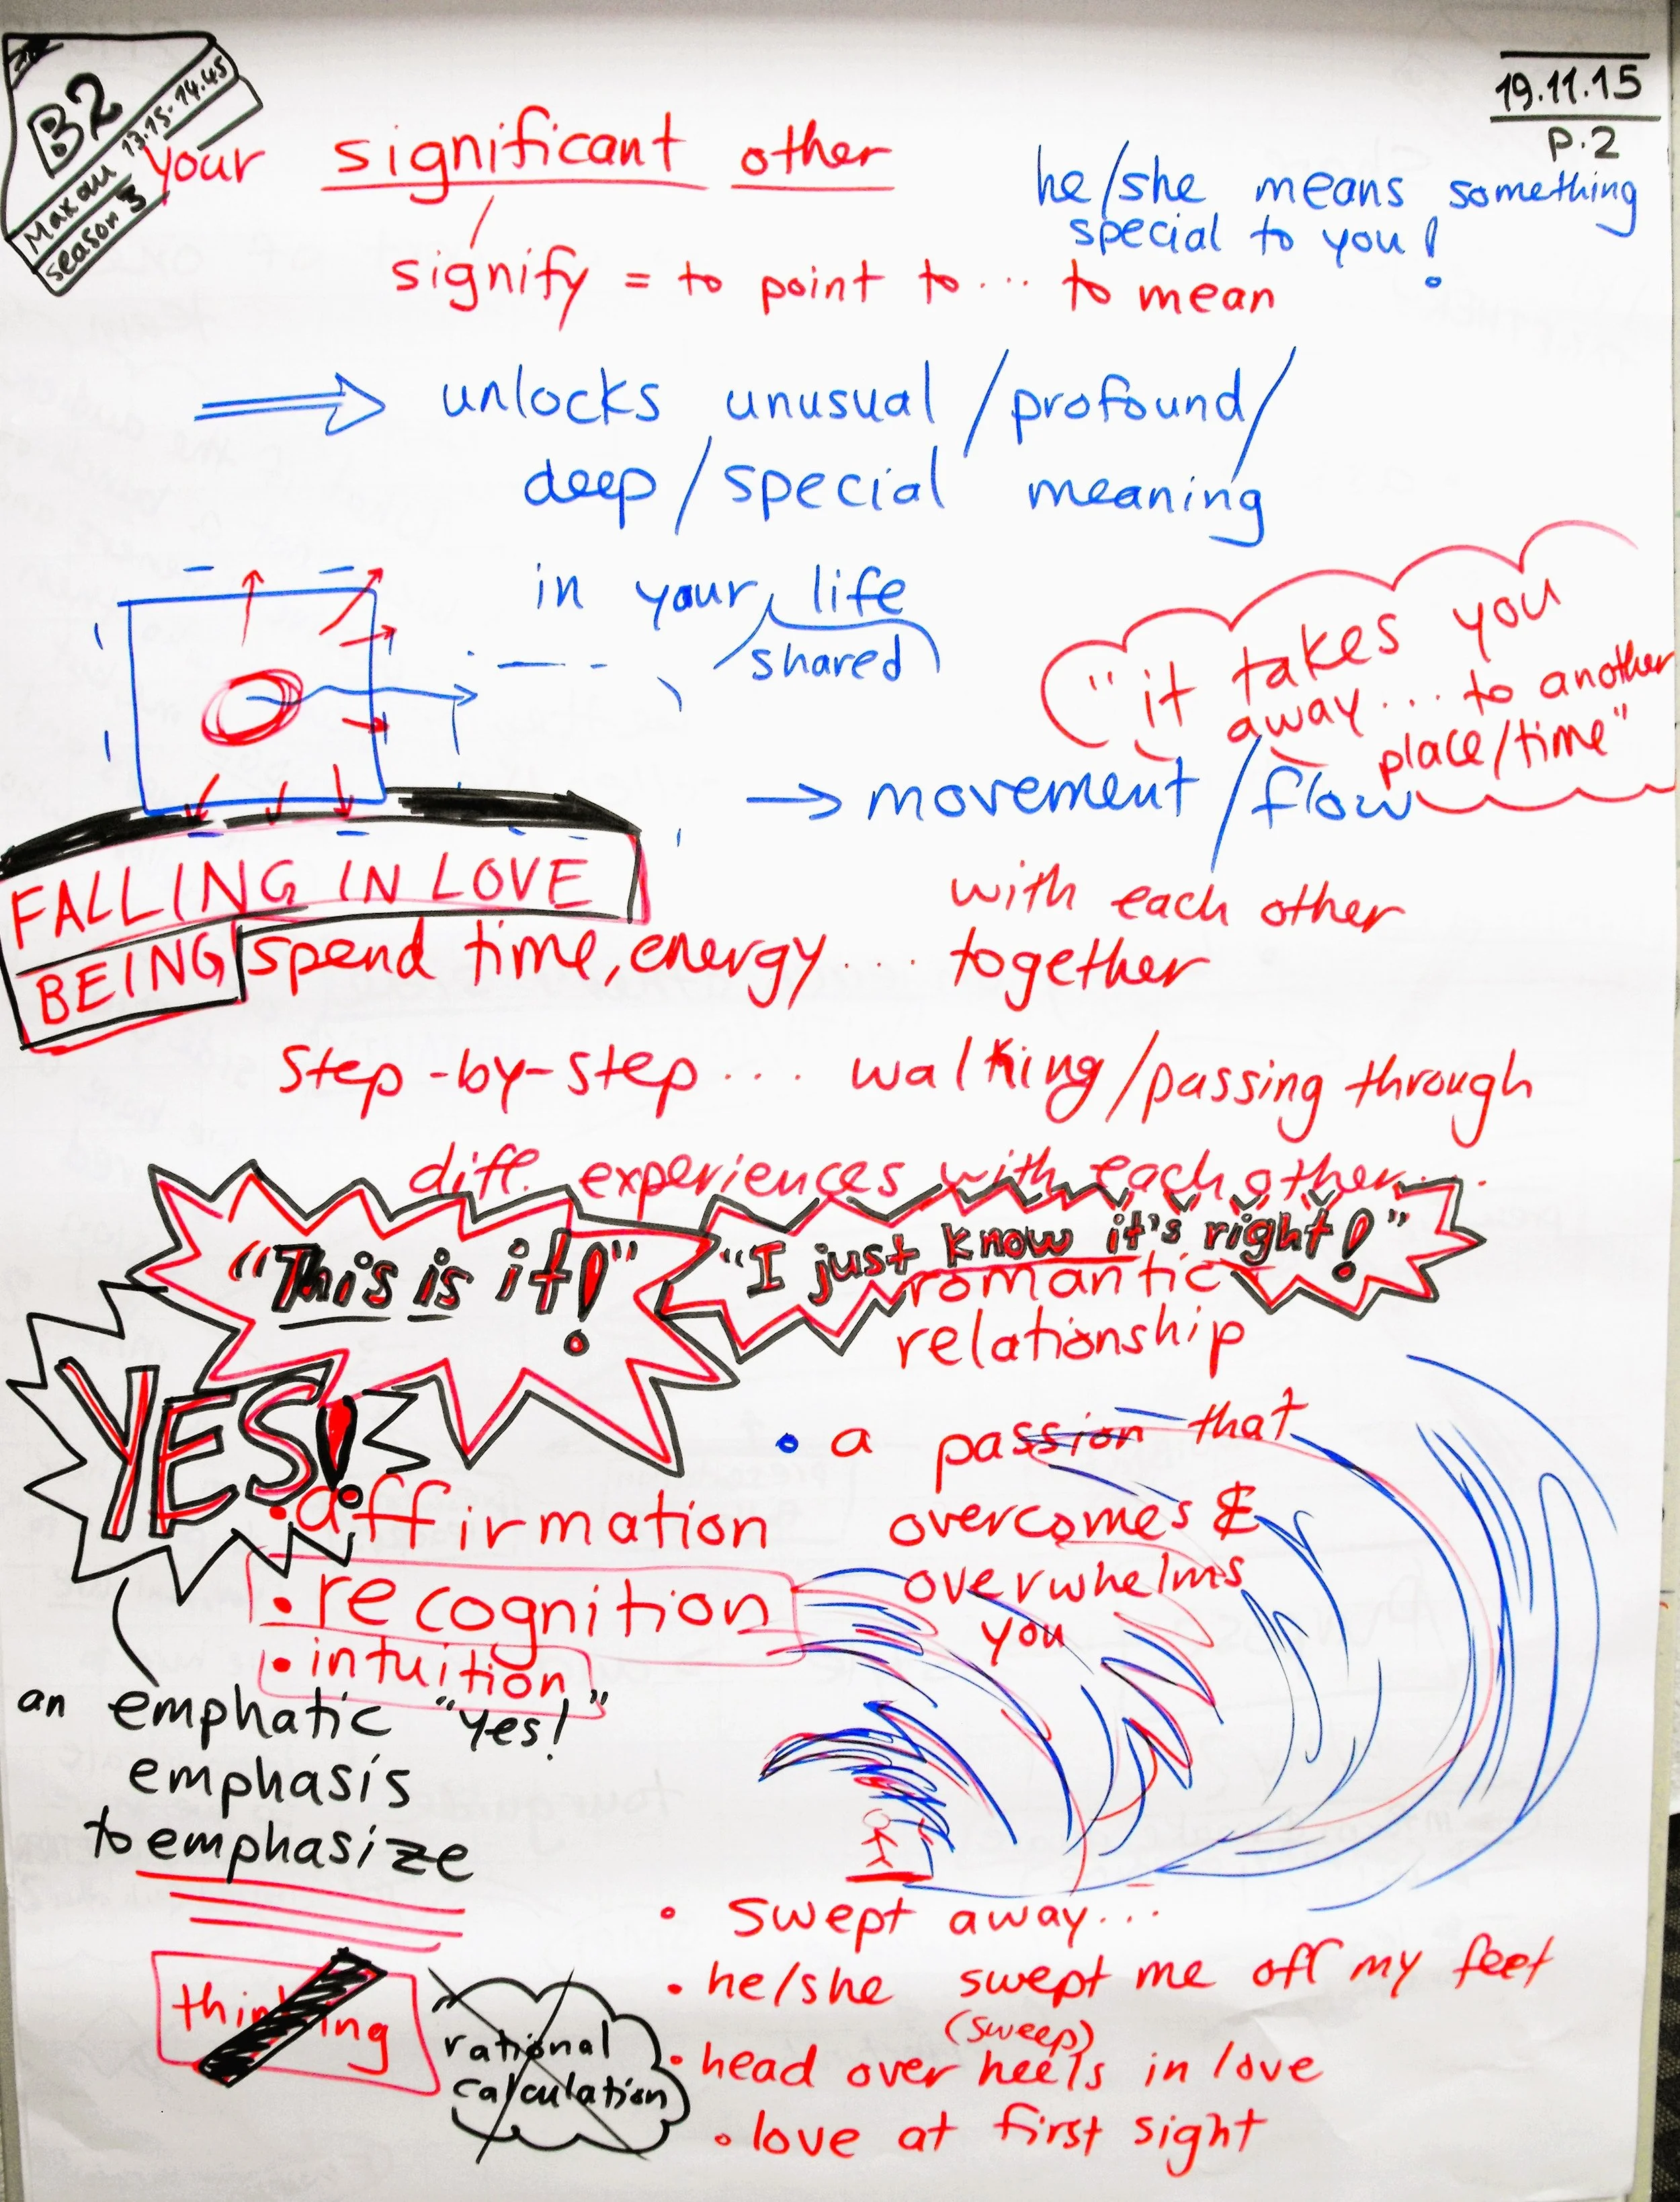 B2
Makau 13.15-14.45
season 3
19.11.15
P.2
your significant other
he/she means something
special to you!
signify = to point to... to mean
unlocks unusual/profound/
deep/special meaning
in your life
shared
"it takes you
away... to another
place/time"
→ movement/flow
FALLING IN LOVE
BEING
with each other
spend time, energy... together
step-by-step... walking/passing through
diff. experiences with each other...
"This is it!"
"I just know it's right!"
romantic
relationship
YES!
• a passion that
overcomes &
overwhelms
you
• affirmation
• recognition
• intuition
an emphatic "yes!"
emphasis
to emphasize
thinking
rational
calculation
• swept away...
• he/she swept me off my feet
(sweep)
• head over heels in love
• love at first sight